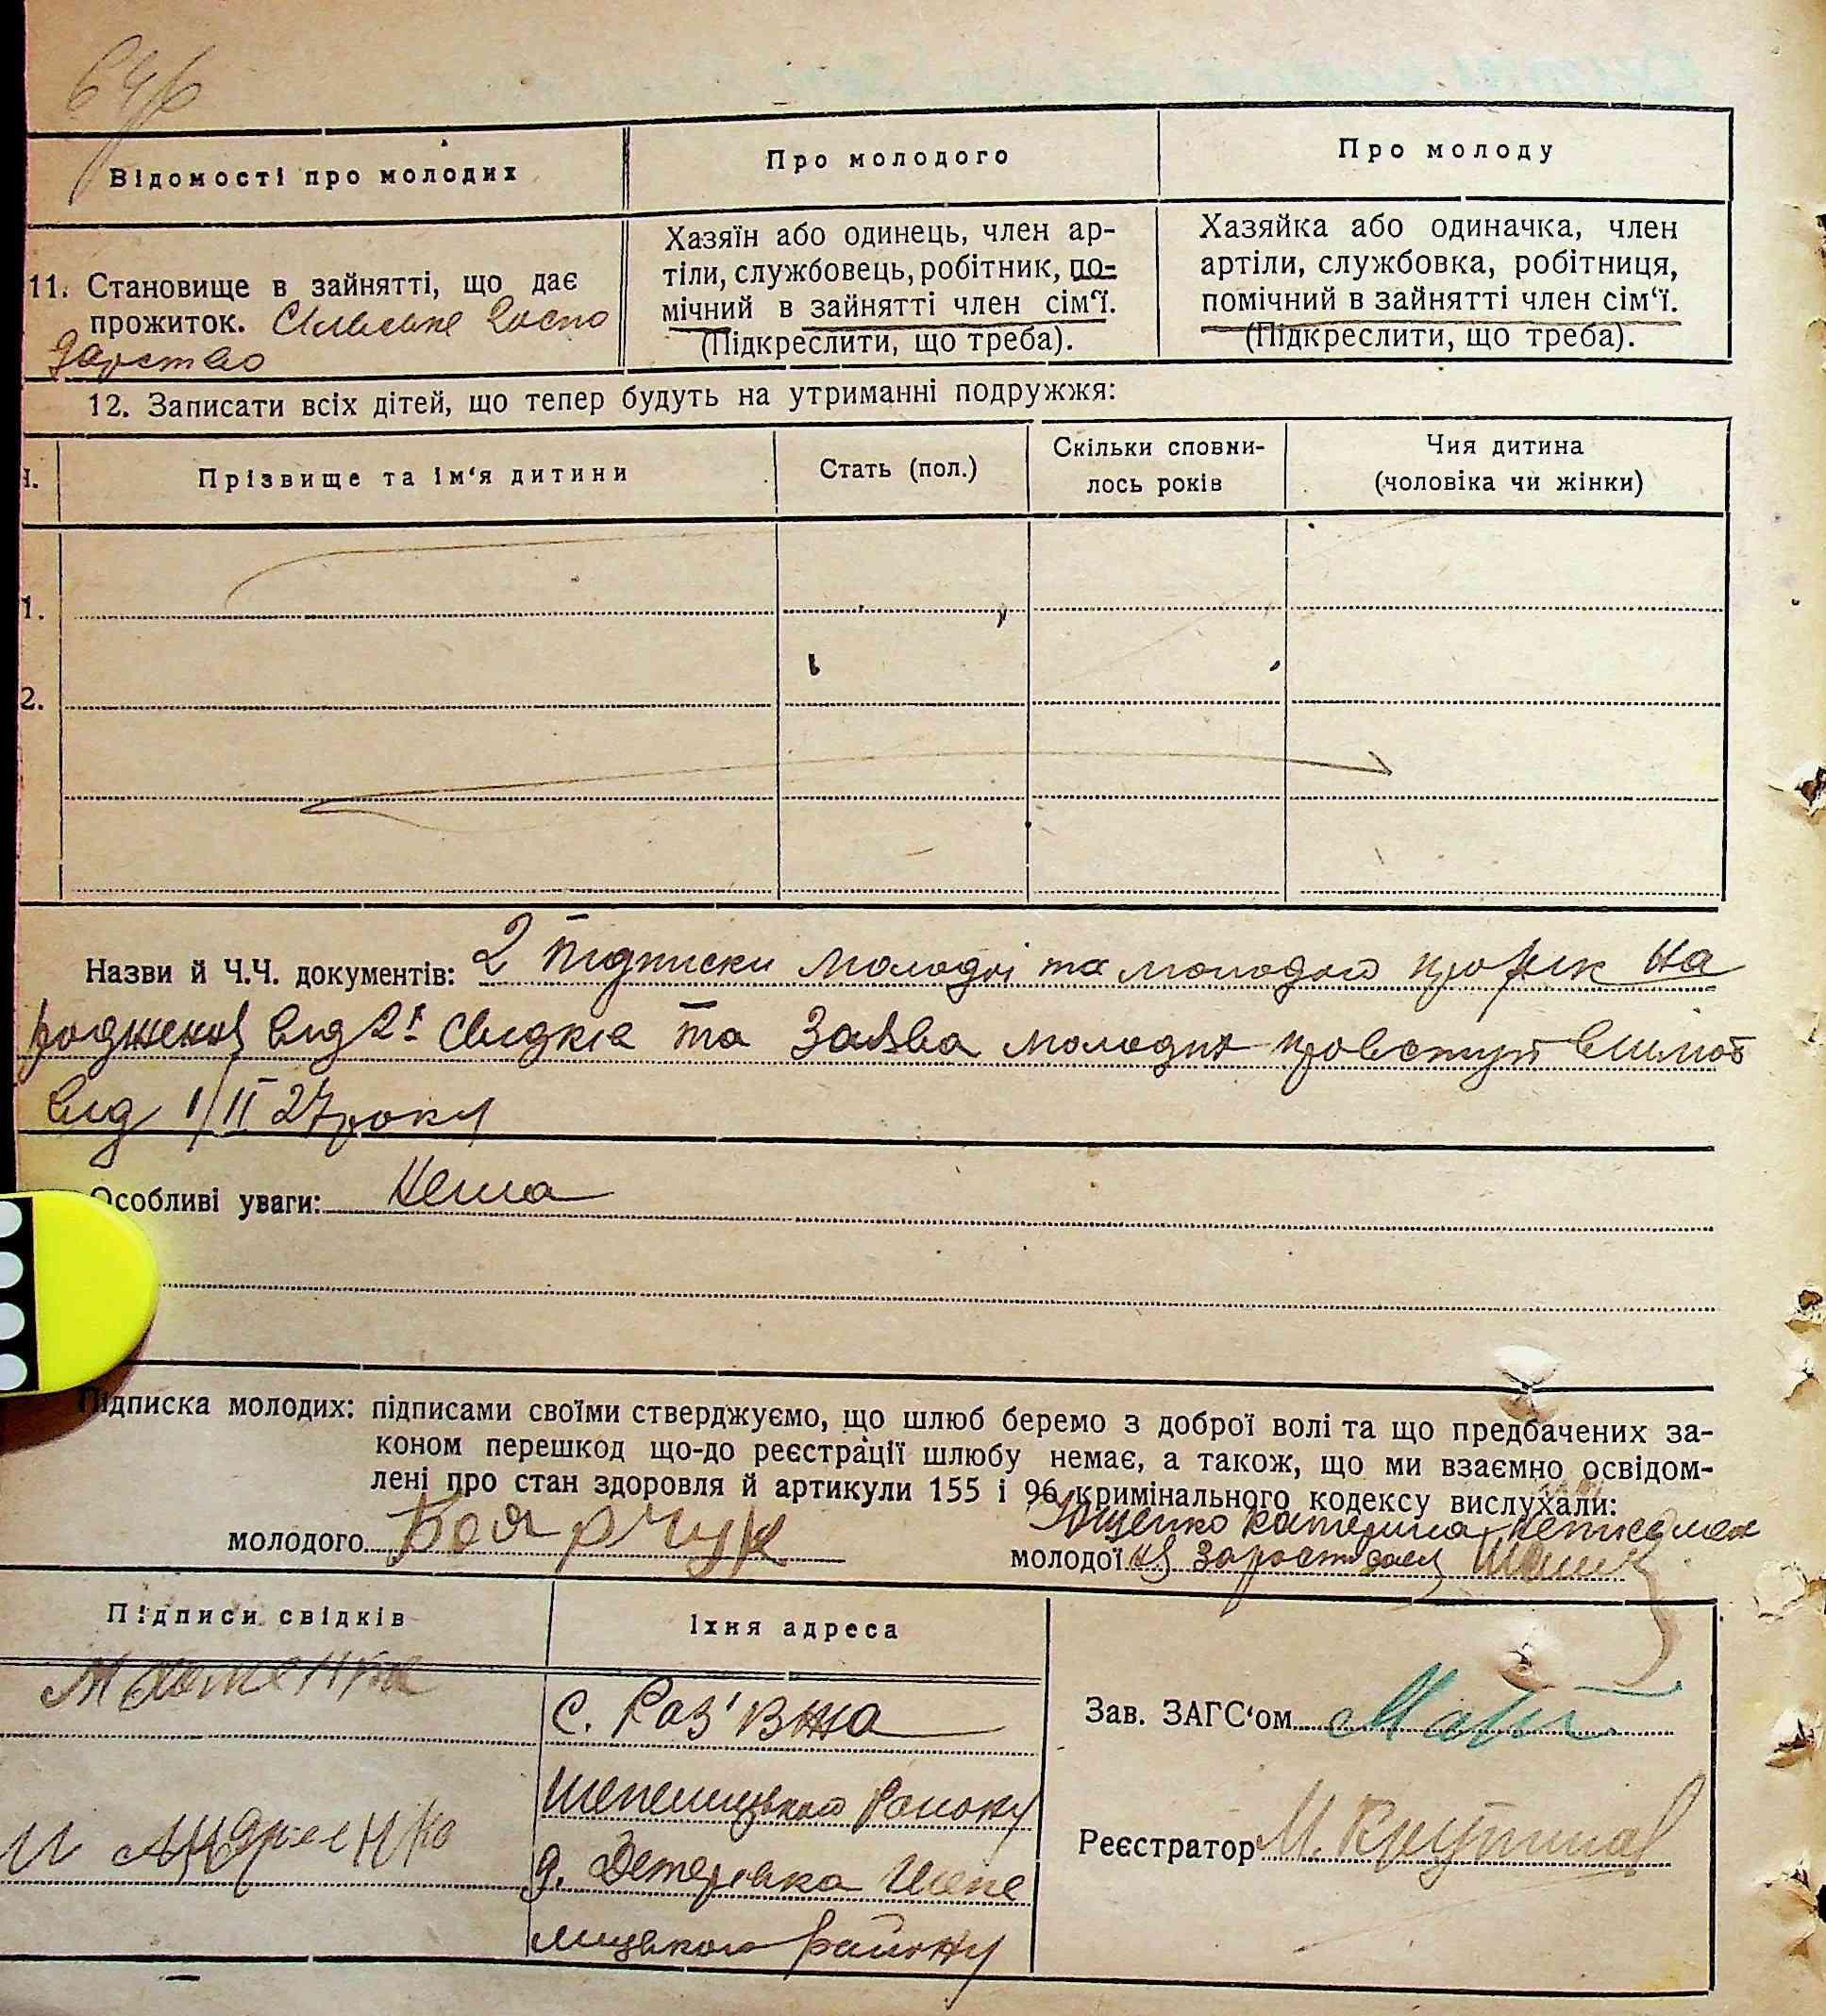 Відомості про молодих
Про молодого
Про молоду
11. Становище в зайнятті, що дає
прожиток. Сільське Госпо
дарство
Хазяїн або одинець, член ар-
тіли, службовець, робітник, по-
мічний в зайнятті член сім‘ї.
(Підкреслити, що треба).
Хазяйка або одиначка, член
артіли, службовка, робітниця,
помічний в зайнятті член сім‘ї.
(Підкреслити, що треба).
12. Записати всіх дітей, що тепер будуть на утриманні подружжя:
Ч.
Прізвище та ім‘я дитини
Стать (пол.)
Скільки сповни-
лось років
Чия дитина
(чоловіка чи жінки)
1.
2.
Назви й Ч.Ч. документів: 2 підписки молодої та молодого про рік на
родження від 2х свидків та Заява молодих про вступ
від 1/II 27 року
Особливі уваги: Нема
Підписка молодих: підписами своїми стверджуємо, що шлюб беремо з доброї волі та що предбачених за-
коном перешкод що-до реєстрації шлюбу немає, а також, що ми взаємно освідом-
лені про стан здоровля й артикули 155 і 96 кримінального кодексу вислухали:
молодого Боярчук
Ющенко Катерина
молодої
Підписи свідків
Їхня адреса
с. Роз'ьжа
Шепелицького Району
И Андриенко
д. Детерьвка Шепе
лицького району
Зав. ЗАГС‘ом
Реєстратор М.